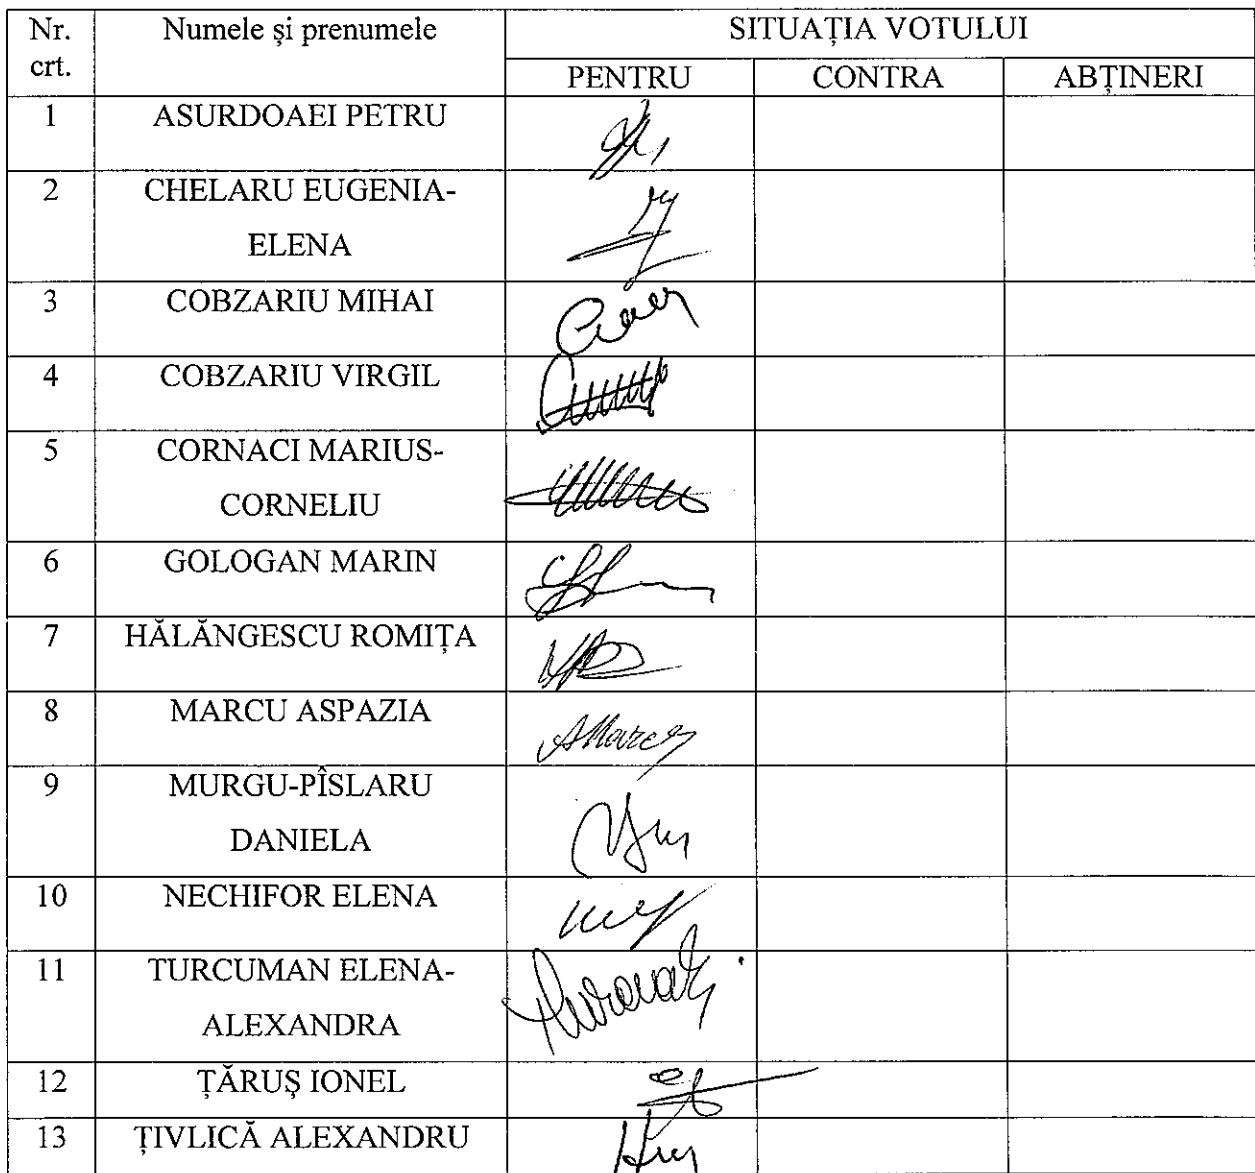 Nr. crt.
Numele şi prenumele
SITUAŢIA VOTULUI
PENTRU
CONTRA
ABŢINERI
1
ASURDOAEI PETRU
2
CHELARU EUGENIA-
ELENA
3
COBZARIU MIHAI
4
COBZARIU VIRGIL
5
CORNACI MARIUS-
CORNELIU
6
GOLOGAN MARIN
7
HĂLĂNGESCU ROMIŢA
8
MARCU ASPAZIA
AMarcu
9
MURGU-PÎSLARU
DANIELA
10
NECHIFOR ELENA
11
TURCUMAN ELENA-
ALEXANDRA
12
ŢĂRUŞ IONEL
13
ŢIVLICĂ ALEXANDRU